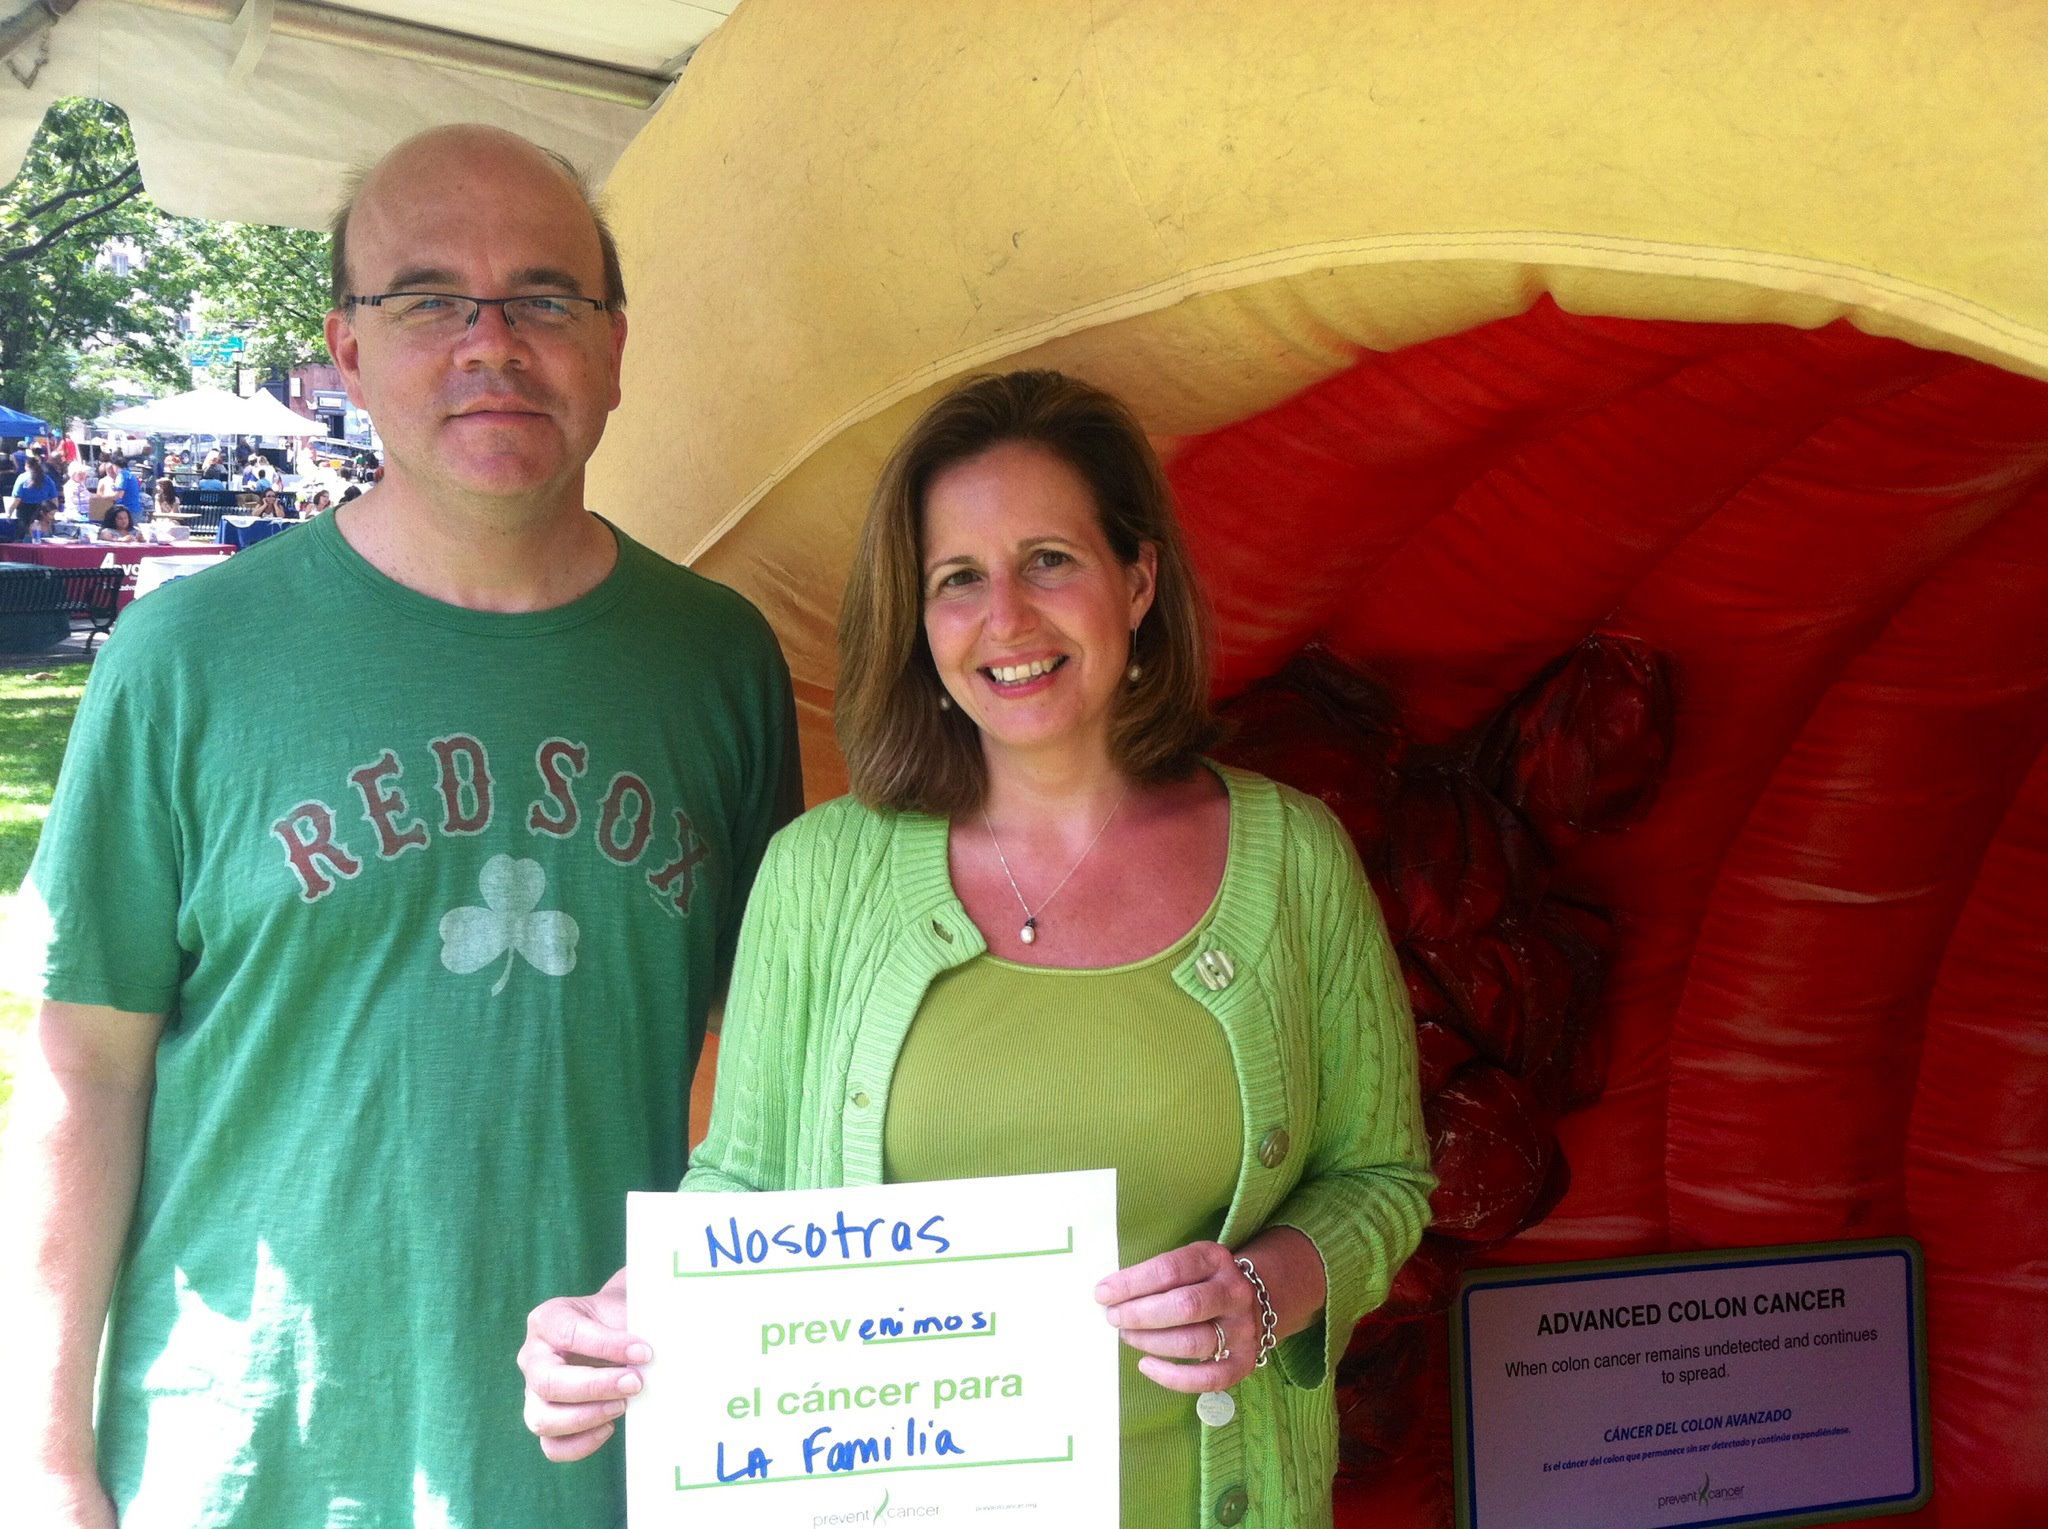 RED SOX
Nosotras
prevenimos
el cáncer para
LA Familia
prevent cancer
preventcancer.org
ADVANCED COLON CANCER
When colon cancer remains undetected and continues
to spread.
CÁNCER DEL COLON AVANZADO
Es el cáncer del colon que permanece sin ser detectado y continúa expandiéndose.
prevent cancer